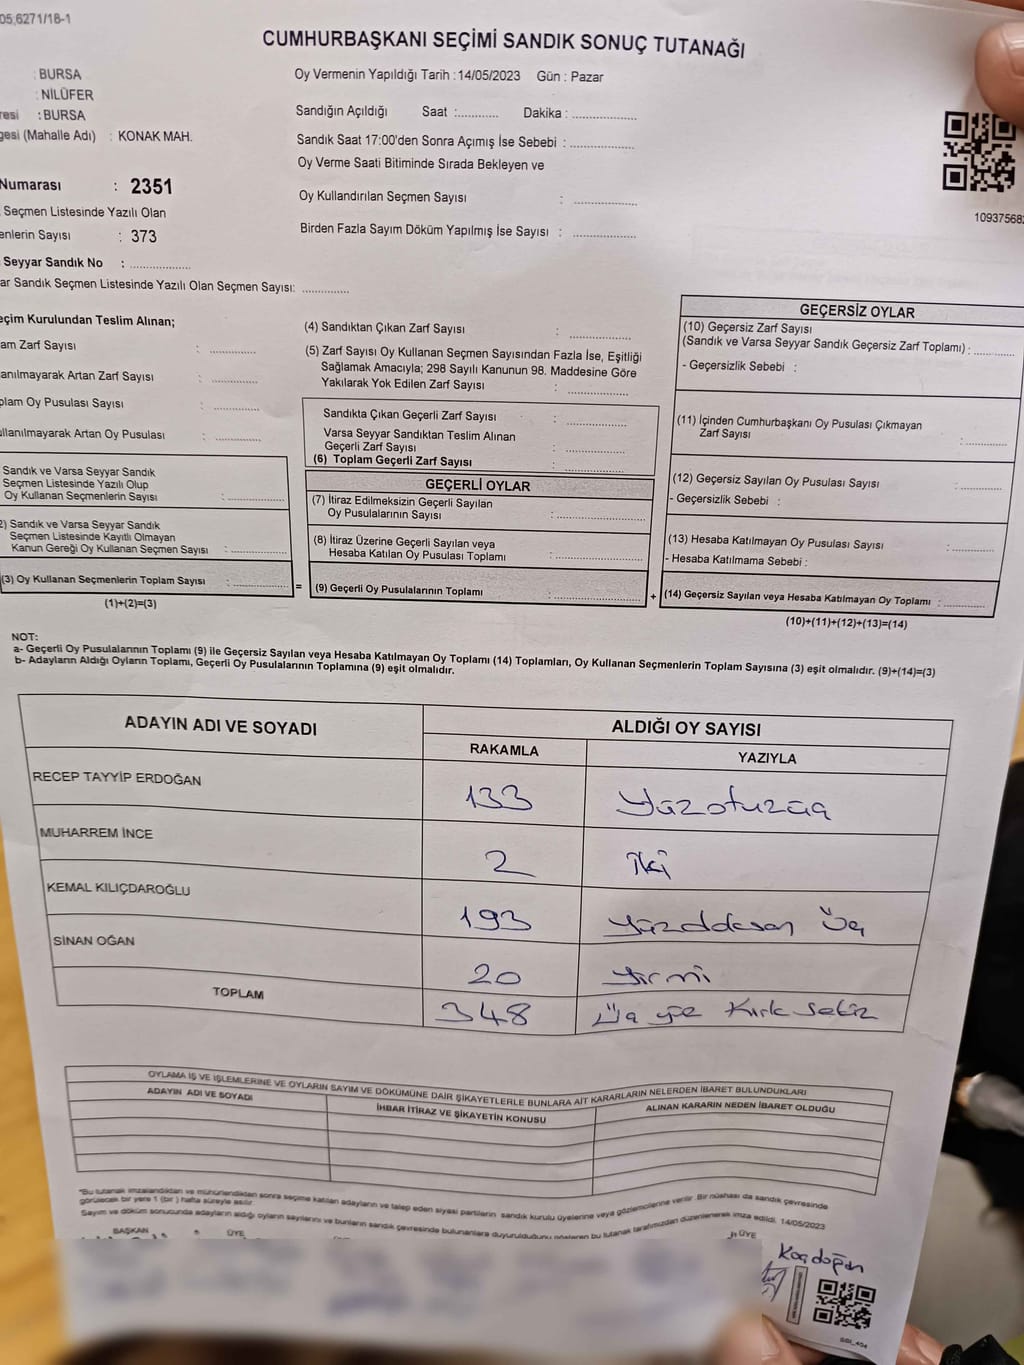 05,6271/18-1
CUMHURBAŞKANI SEÇİMİ SANDIK SONUÇ TUTANAĞI
: BURSA
: NİLÜFER
resi : BURSA
gesi (Mahalle Adı) : KONAK MAH.
Numarası : 2351
Seçmen Listesinde Yazılı Olan
enlerin Sayısı : 373
Seyyar Sandık No : ..................
ar Sandık Seçmen Listesinde Yazılı Olan Seçmen Sayısı: ..............
Oy Vermenin Yapıldığı Tarih : 14/05/2023 Gün : Pazar
Sandığın Açıldığı Saat :............ Dakika : ..................
Sandık Saat 17:00'den Sonra Açımış İse Sebebi : ..................
Oy Verme Saati Bitiminde Sırada Bekleyen ve
Oy Kullandırılan Seçmen Sayısı : ..................
Birden Fazla Sayım Döküm Yapılmış İse Sayısı : ..................
10937568
eçim Kurulundan Teslim Alınan;
am Zarf Sayısı : ..............
anılmayarak Artan Zarf Sayısı : ..............
plam Oy Pusulası Sayısı : ..............
ullanılmayarak Artan Oy Pusulası : ..............
Sandık ve Varsa Seyyar Sandık
Seçmen Listesinde Yazılı Olup
Oy Kullanan Seçmenlerin Sayısı : ..............
2) Sandık ve Varsa Seyyar Sandık
Seçmen Listesinde Kayıtlı Olmayan
Kanun Gereği Oy Kullanan Seçmen Sayısı : ..............
(3) Oy Kullanan Seçmenlerin Toplam Sayısı : ..............
(1)+(2)=(3)
(4) Sandıktan Çıkan Zarf Sayısı : ..............
(5) Zarf Sayısı Oy Kullanan Seçmen Sayısından Fazla İse, Eşitliği
Sağlamak Amacıyla; 298 Sayılı Kanunun 98. Maddesine Göre
Yakılarak Yok Edilen Zarf Sayısı : ..............
Sandıkta Çıkan Geçerli Zarf Sayısı : ..............
Varsa Seyyar Sandıktan Teslim Alınan
Geçerli Zarf Sayısı : ..............
(6) Toplam Geçerli Zarf Sayısı : ..............
GEÇERLİ OYLAR
(7) İtiraz Edilmeksizin Geçerli Sayılan
Oy Pusulalarının Sayısı : ..............
(8) İtiraz Üzerine Geçerli Sayılan veya
Hesaba Katılan Oy Pusulası Toplamı : ..............
= (9) Geçerli Oy Pusulalarının Toplamı : ..............
GEÇERSİZ OYLAR
(10) Geçersiz Zarf Sayısı
(Sandık ve Varsa Seyyar Sandık Geçersiz Zarf Toplamı) : ............
- Geçersizlik Sebebi :
(11) İçinden Cumhurbaşkanı Oy Pusulası Çıkmayan
Zarf Sayısı : ............
(12) Geçersiz Sayılan Oy Pusulası Sayısı : ............
- Geçersizlik Sebebi :
(13) Hesaba Katılmayan Oy Pusulası Sayısı : ............
- Hesaba Katılmama Sebebi :
+ (14) Geçersiz Sayılan veya Hesaba Katılmayan Oy Toplamı : ............
(10)+(11)+(12)+(13)=(14)
NOT:
a- Geçerli Oy Pusulalarının Toplamı (9) ile Geçersiz Sayılan veya Hesaba Katılmayan Oy Toplamı (14) Toplamları, Oy Kullanan Seçmenlerin Toplam Sayısına (3) eşit olmalıdır. (9)+(14)=(3)
b- Adayların Aldığı Oyların Toplamı, Geçerli Oy Pusulalarının Toplamına (9) eşit olmalıdır.
ADAYIN ADI VE SOYADI ALDIĞI OY SAYISI
RAKAMLA YAZIYLA
RECEP TAYYİP ERDOĞAN 133 Yüzotuzüç
MUHARREM İNCE 2 iki
KEMAL KILIÇDAROĞLU 193 Yüzddosan Üç
SİNAN OĞAN 20 yirmi
TOPLAM 348 Üç yüz Kırk sekiz
OYLAMA İŞ VE İŞLEMLERİNE VE OYLARIN SAYIM VE DÖKÜMÜNE DAİR ŞİKAYETLERLE BUNLARA AİT KARARLARIN NELERDEN İBARET BULUNDUKLARI
ADAYIN ADI VE SOYADI İHBAR İTİRAZ VE ŞİKAYETİN KONUSU ALINAN KARARIN NEDEN İBARET OLDUĞU
*Bu tutanak imzalandıktan ve mühürlendikten sonra seçime katılan adayların ve talep eden siyasi partilerin sandık kurulu üyelerine veya gözlemcilerine verilir. Bir nüshası da sandık çevresinde
görülecek bir yere 1 (bir) hafta süreyle asılır.
Sayım ve döküm sonucunda adayların aldığı oyların sayılarını ve bunların sandık çevresinde bulunanlara duyurulduğunu gösteren bu tutanak tarafımızdan düzenlenerek imza edildi. 14/05/2023
BAŞKAN ÜYE ÜYE
Koçdoğan